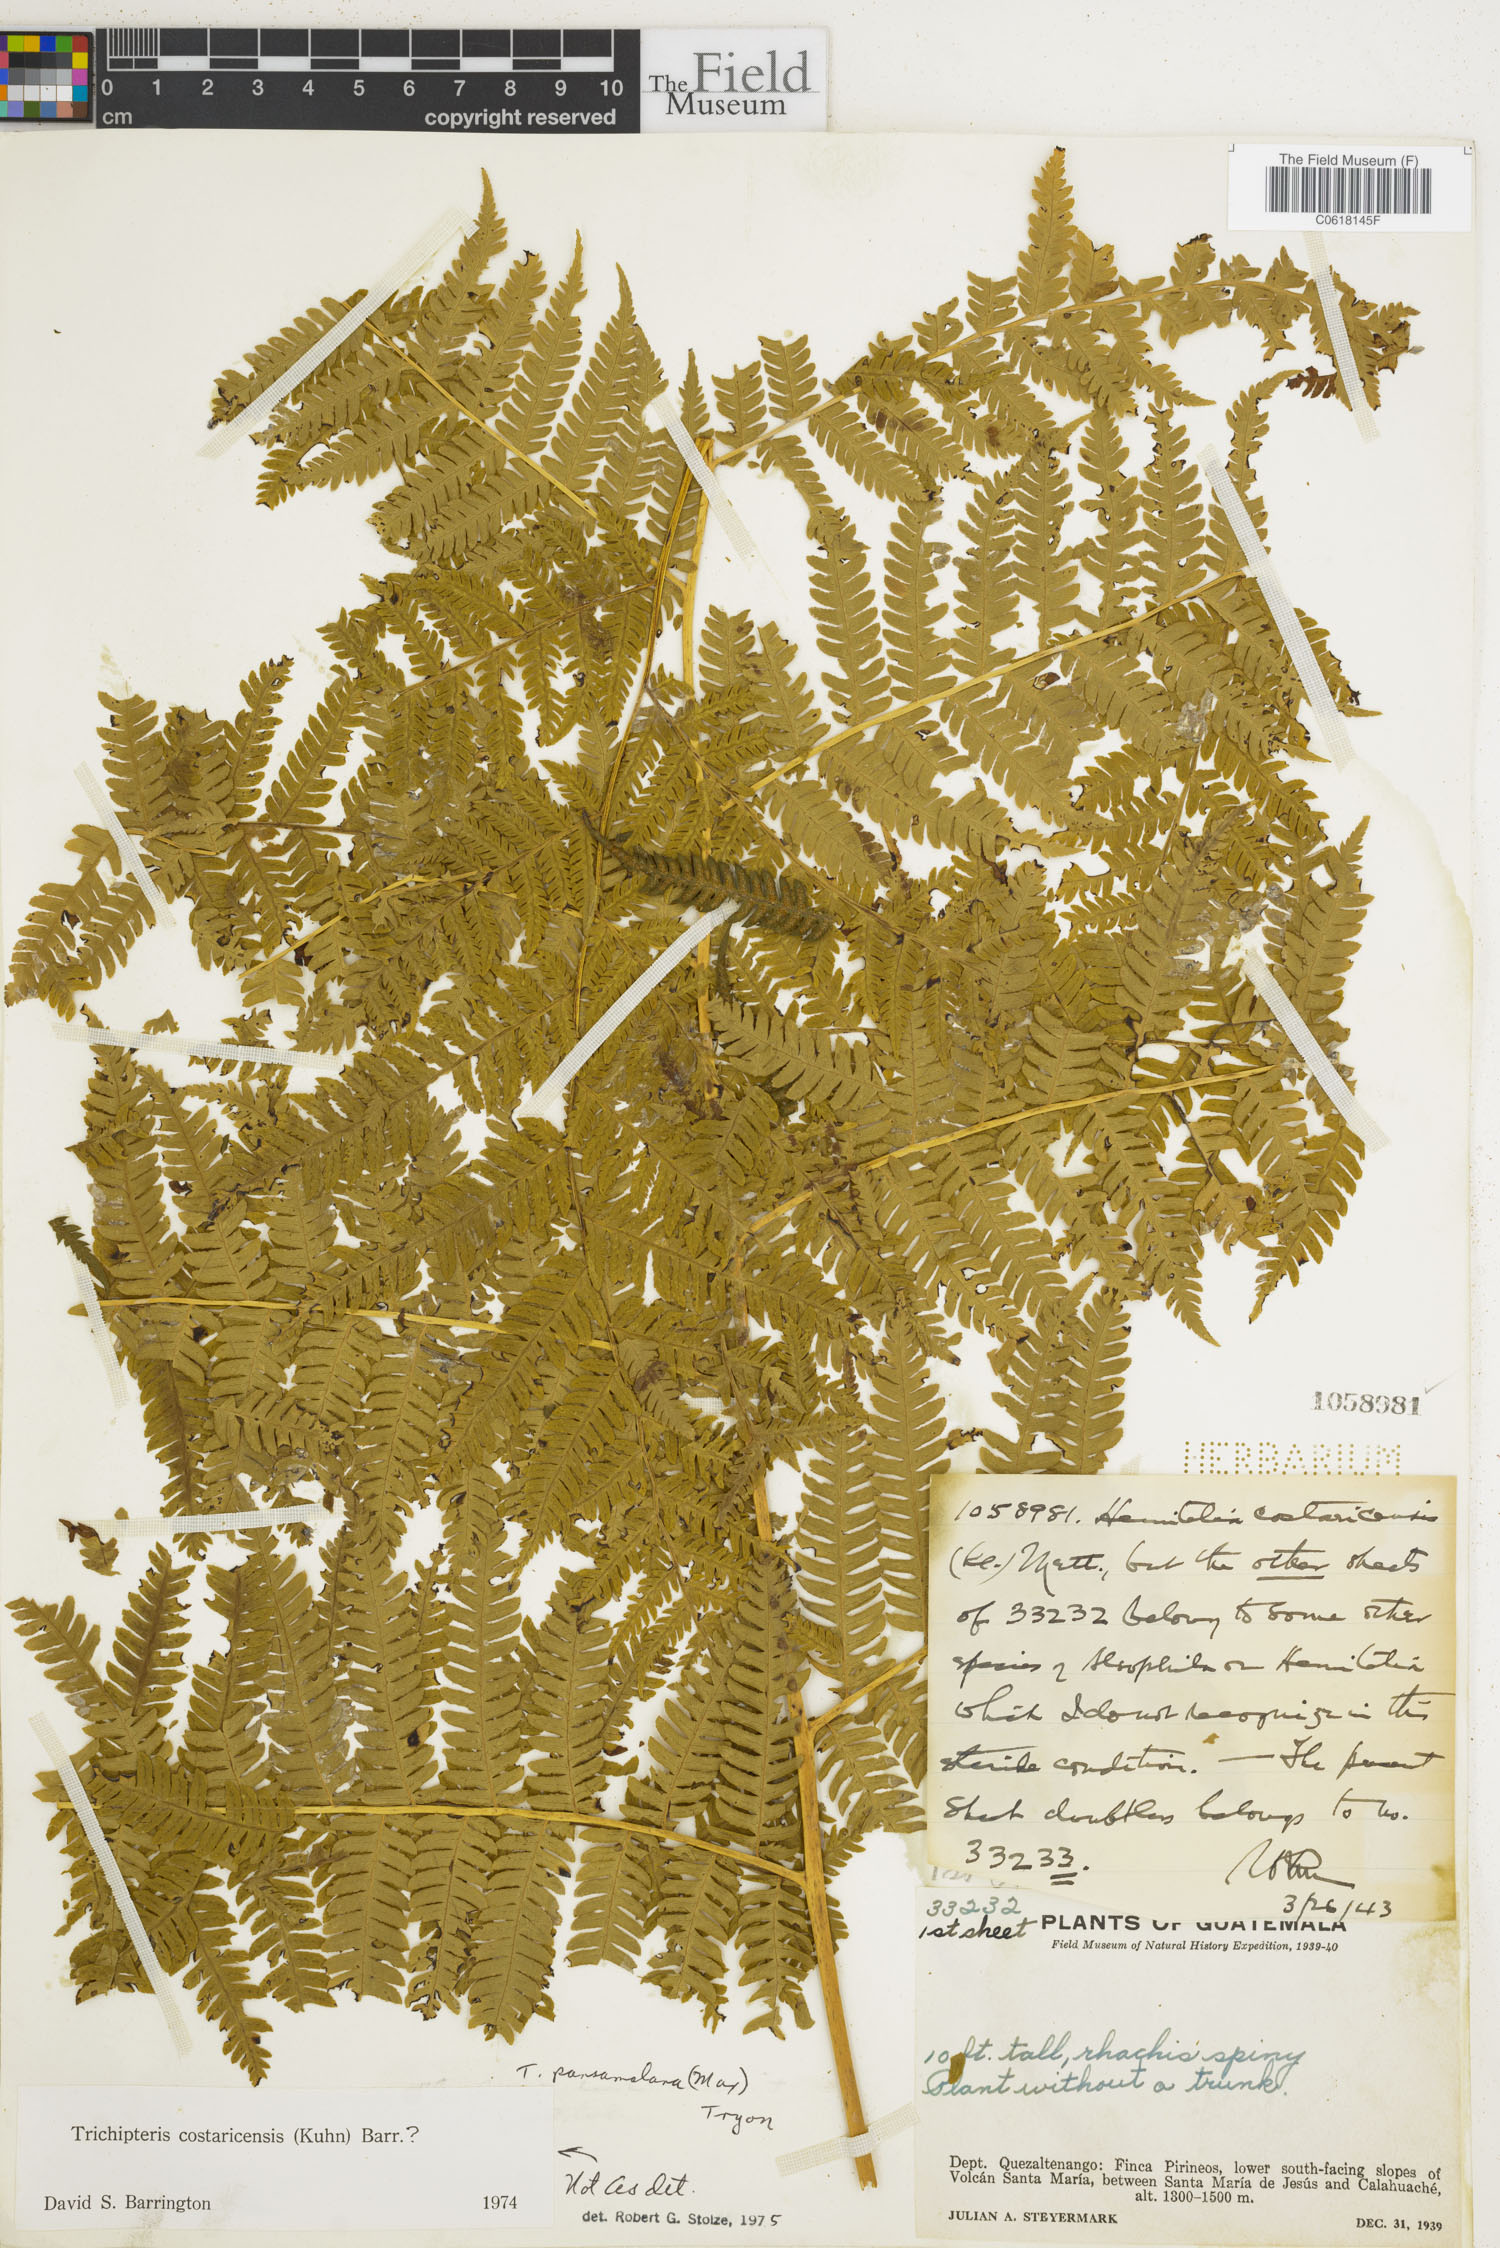 0 1 2 3 4 5 6 7 8 9 10
cm
copyright reserved
The Field
Museum
The Field Museum (F)
C0618145F
1058981
HERBARIUM
1058981. Hemitelia costaricensis
(Kl.) Mett., but the other sheets
of 33232 belong to some other
species of Alsophila or Hemitelia
which I do not recognize in this
sterile condition. — The present
sheet doubtless belongs to no.
33233.
3/26/43
33232
1st sheet PLANTS OF GUATEMALA
Field Museum of Natural History Expedition, 1939-40
10 ft. tall, rhachis spiny
Plant without a trunk.
Dept. Quezaltenango: Finca Pirineos, lower south-facing slopes of
Volcán Santa María, between Santa María de Jesús and Calahuaché,
alt. 1300-1500 m.
JULIAN A. STEYERMARK
DEC. 31, 1939
T. pansamalana (Max)
Tryon
← Not as det.
det. Robert G. Stolze, 1975
Trichipteris costaricensis (Kuhn) Barr.?
David S. Barrington 1974